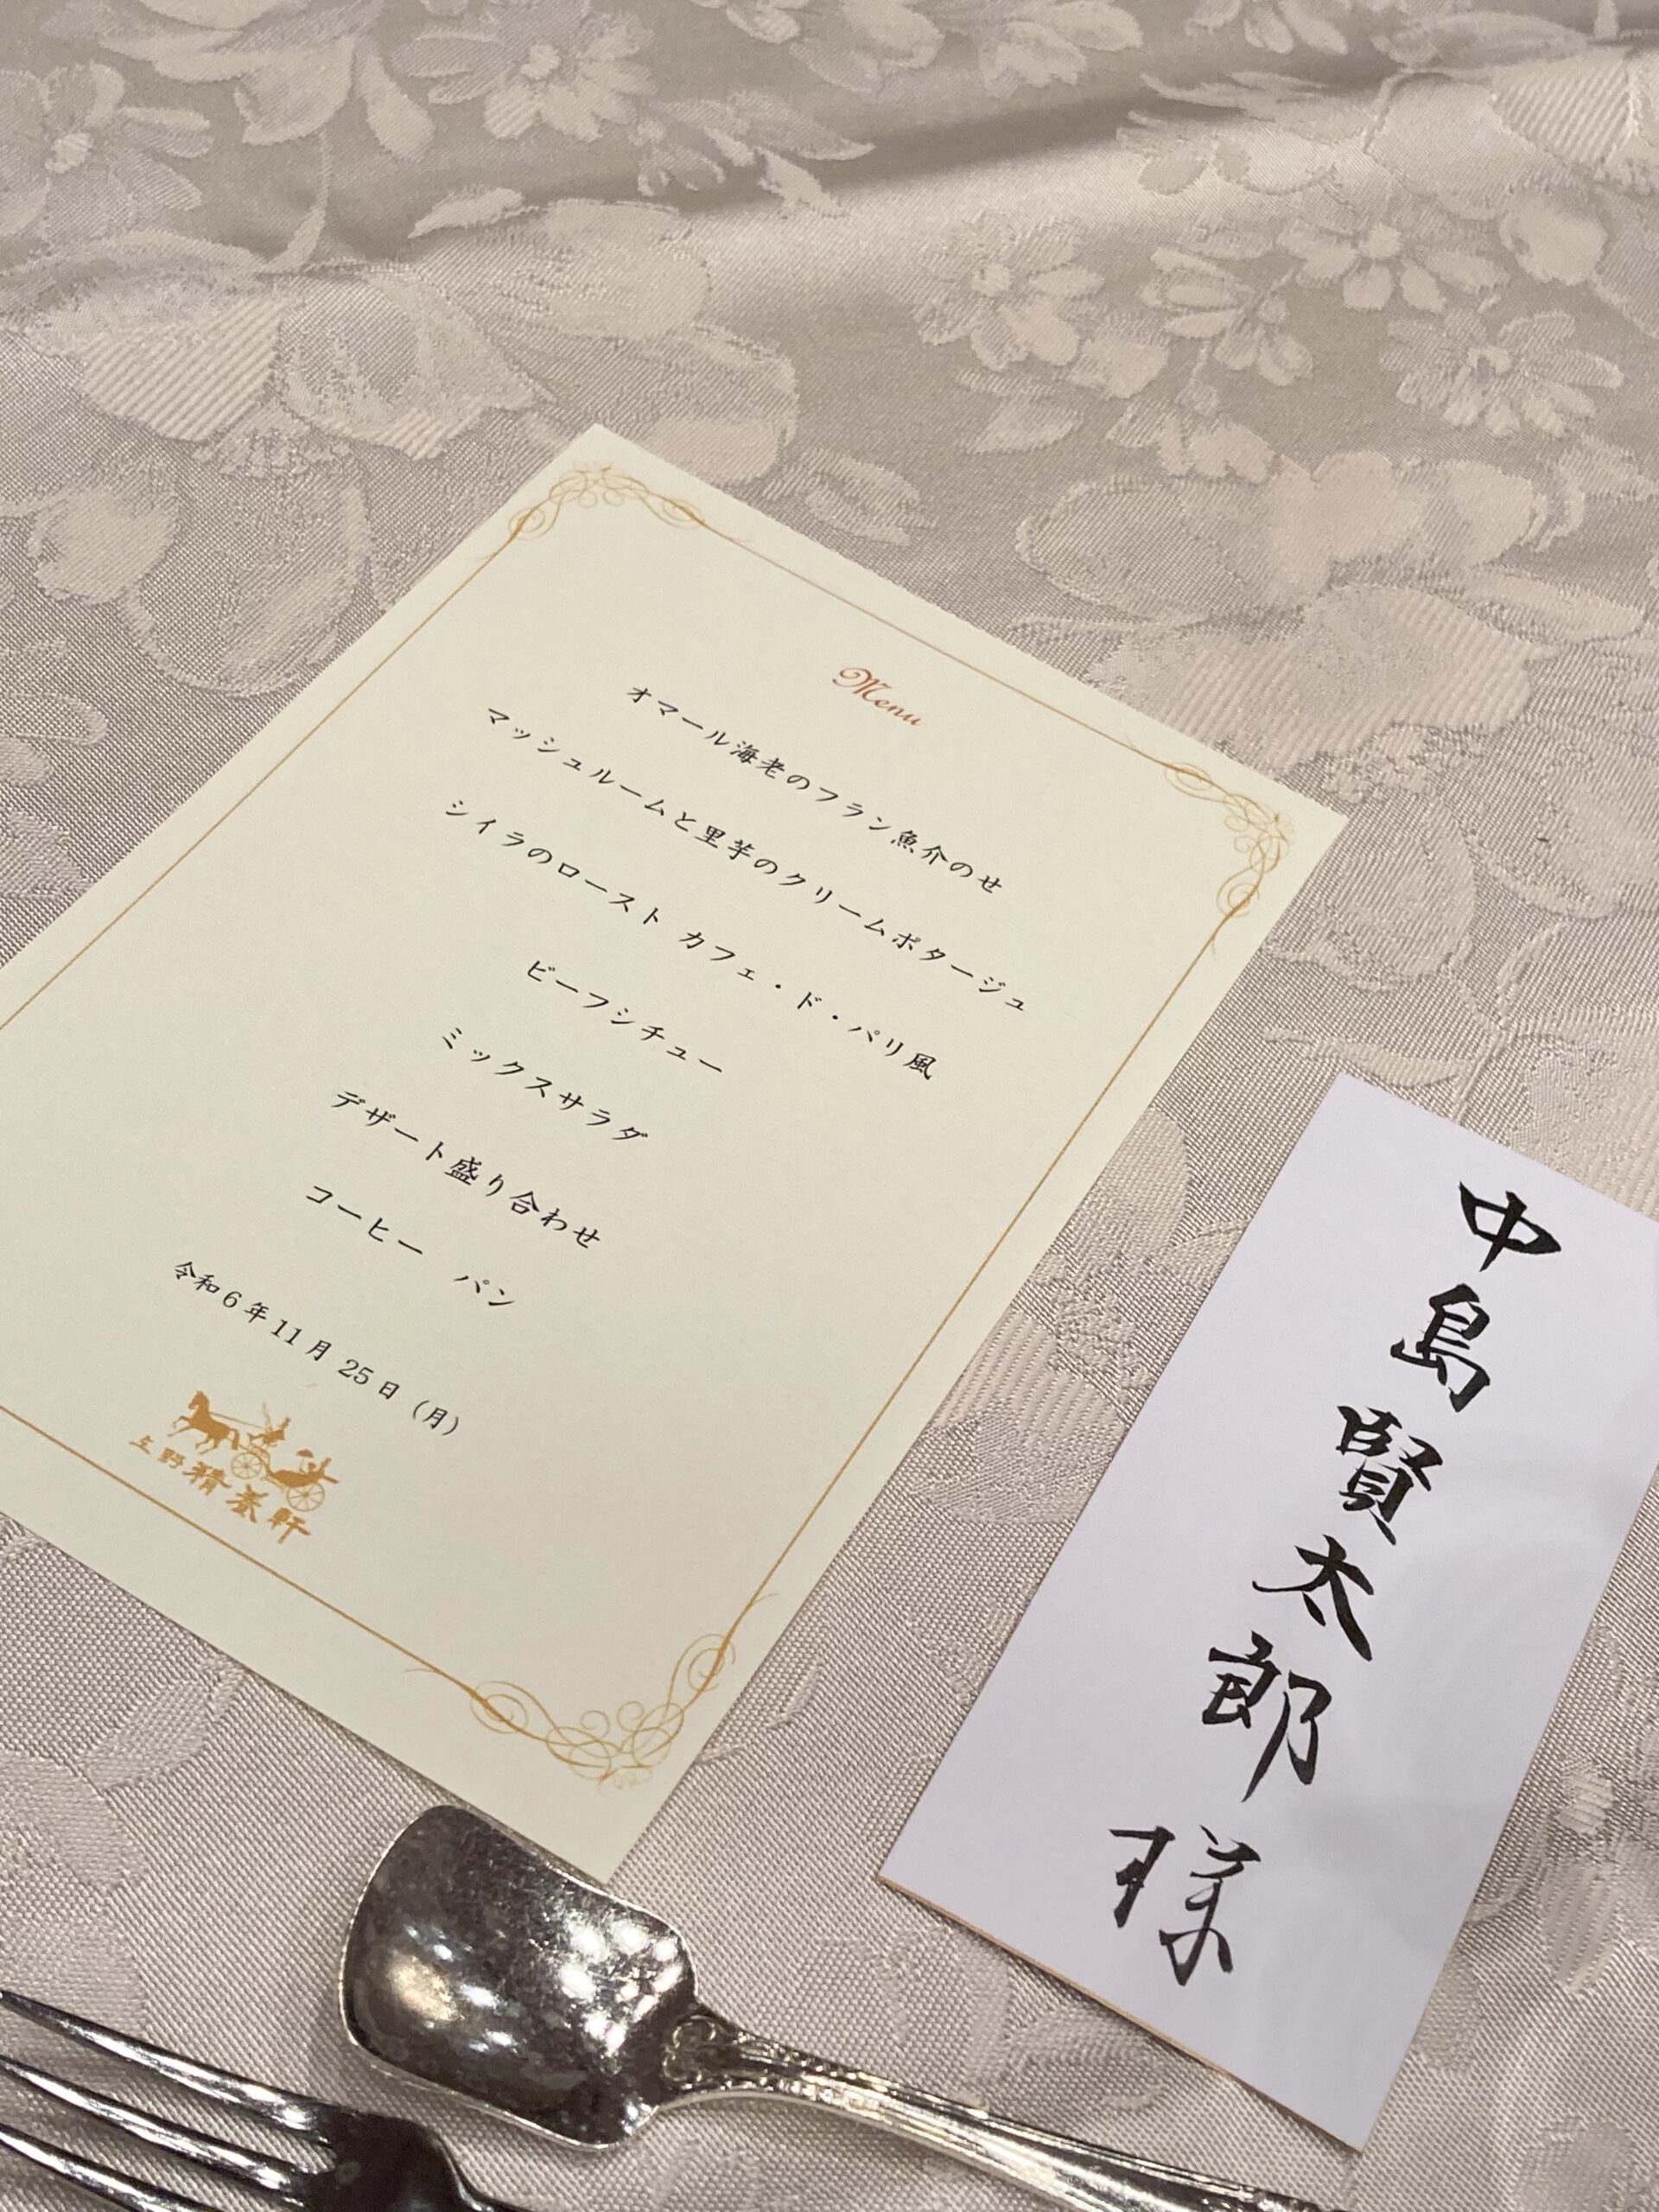 Menu
オマール海老のフラン魚介のせ
マッシュルームと里芋のクリームポタージュ
シイラのロースト カフェ・ド・パリ風
ビーフシチュー
ミックスサラダ
デザート盛り合わせ
コーヒー パン
令和6年11月 25日 (月)
上野精養軒
中島賢太郎様